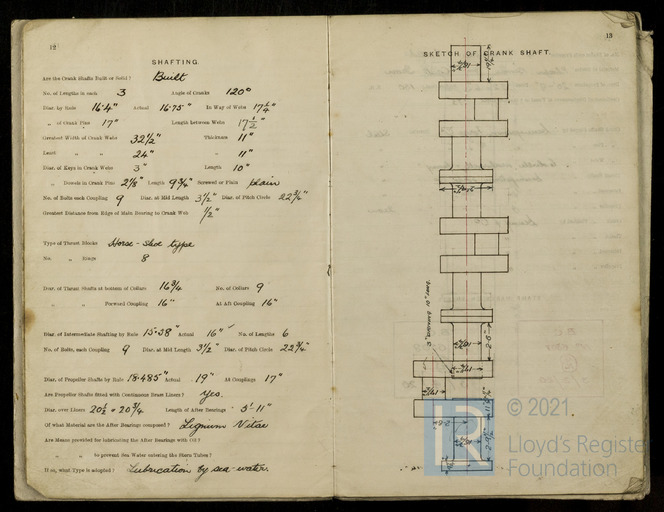 12
SHAFTING.
Are the Crank Shafts Built or Solid? Built
No. of Lengths in each 3 Angle of Cranks 120°
Diar. by Rule 16.4" Actual 16.75" In Way of Webs 17 1/4"
„ of Crank Pins 17" Length between Webs 17 1/2"
Greatest Width of Crank Webs 32 1/2" Thickness 11"
Least „ „ 24" „ 11"
Diar. of Keys in Crank Webs 3" Length 10"
„ Dowels in Crank Pins 2 1/8" Length 9 3/4" Screwed or Plain plain
No. of Bolts each Coupling 9 Diar. at Mid Length 3 1/2" Diar. of Pitch Circle 22 3/4"
Greatest Distance from Edge of Main Bearing to Crank Web 1/2"
Type of Thrust Blocks Horse-shoe type
No. „ Rings 8
Diar. of Thrust Shafts at bottom of Collars 16 3/4 No. of Collars 9
„ „ Forward Coupling 16" At Aft Coupling 16"
Diar. of Intermediate Shafting by Rule 15.58" Actual 16" No. of Lengths 6
No. of Bolts, each Coupling 9 Diar. at Mid Length 3 1/2" Diar. of Pitch Circle 22 3/4"
Diar. of Propeller Shafts by Rule 18.485" Actual 19" At Couplings 17"
Are Propeller Shafts fitted with Continuous Brass Liners? Yes.
Diar. over Liners 20 1/2 & 20 3/4 Length of After Bearings 5'-11"
Of what Material are the After Bearings composed? Lignum Vitae
Are Means provided for lubricating the After Bearings with Oil?
„ „ to prevent Sea Water entering the Stern Tubes?
If so, what Type is adopted? Lubrication by sea-water.
13
SKETCH OF CRANK SHAFT.
© 2021.
Lloyd's Registe
Foundation